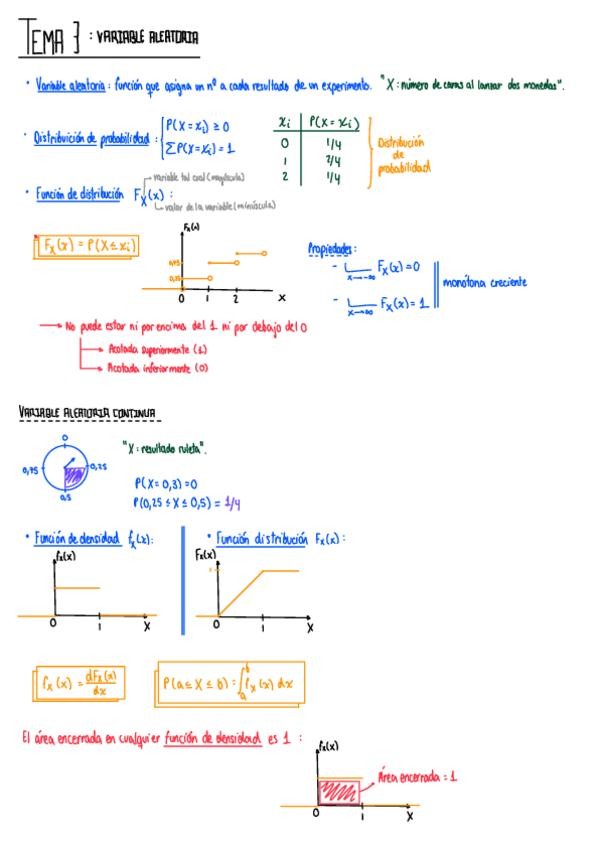 TEMA 3 : VARIABLE ALEATORIA
· Variable aleatoria : función que asigna un nº a cada resultado de un experimento. "X : número de caras al lanzar dos monedas".
· Distribuición de probabilidad : P(X = xᵢ) ≥ 0
∑P(X=xᵢ) = 1
xᵢ P(X = xᵢ)
0 1/4
1 2/4
2 1/4
Distribución de probabilidad
variable tal cual (mayúscula)
· Función de distribución F_X(x) :
valor de la variable (minúscula)
F_X(x) = P(X ≤ xᵢ)
F_X(x)
0,25
0 1 2 X
Propiedades:
- L x→-∞ F_X(x) = 0
- L x→∞ F_X(x) = 1
monótona creciente
→ No puede estar ni por encima del 1 ni por debajo del 0
→ Acotada superiormente (1)
→ Acotada inferiormente (0)
VARIABLE ALEATORIA CONTINUA
0
0,75 0,25
0,5
"X : resultado ruleta".
P(X = 0,3) = 0
P(0,25 ≤ X ≤ 0,5) = 1/4
· Función de densidad f_X(x) :
f_X(x)
0 1 X
· Función distribución F_X(x) :
F_X(x)
0 1 X
f_X(x) = dF_X(x)/dx
P(a ≤ X ≤ b) = ∫ₐᵇ f_X(x) dx
El área encerrada en cualquier función de densidad es 1 :
f_X(x)
Área encerrada = 1
0 1 X